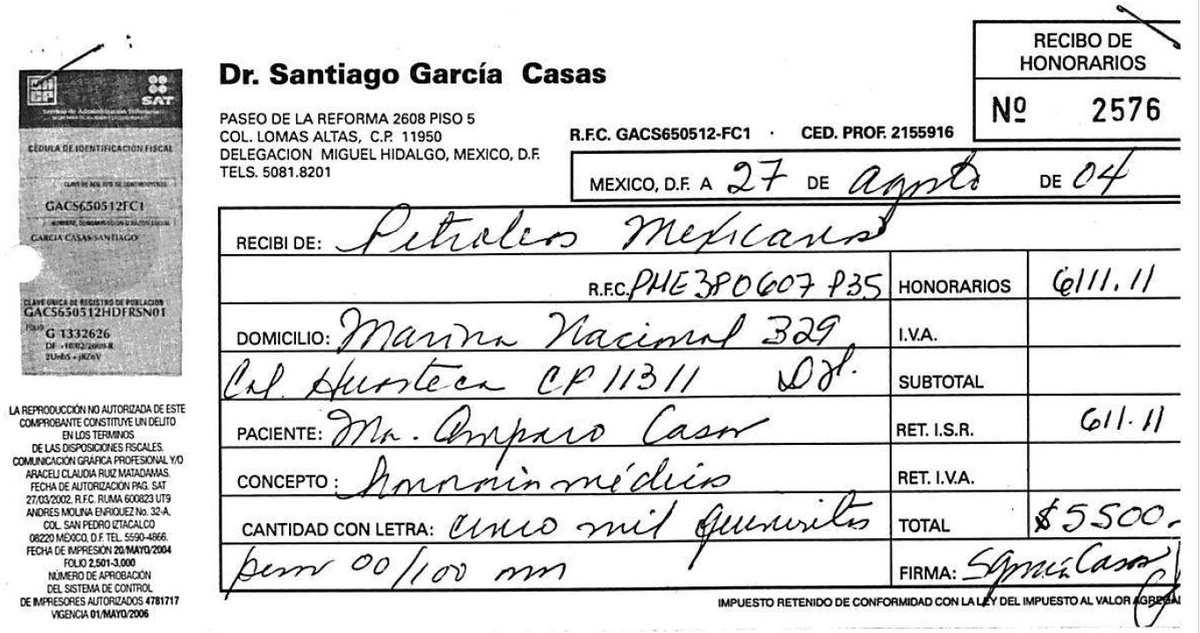 SAT
Servicio de Administración Tributaria
CÉDULA DE IDENTIFICACIÓN FISCAL
GACS650512FC1
GARCIA CASAS SANTIAGO
CLAVE ÚNICA DE REGISTRO DE POBLACIÓN
GACS650512HDFRSN01
FOLIO G 1332626
LA REPRODUCCIÓN NO AUTORIZADA DE ESTE
COMPROBANTE CONSTITUYE UN DELITO
EN LOS TERMINOS
DE LAS DISPOSICIONES FISCALES.
COMUNICACIÓN GRÁFICA PROFESIONAL Y/O
ARACELI CLAUDIA RUIZ MATADAMAS.
FECHA DE AUTORIZACIÓN PAG. SAT
27/03/2002. R.F.C. RUMA 600823 UT9
ANDRES MOLINA ENRIQUEZ No. 32-A.
COL. SAN PEDRO IZTACALCO
08220 MÉXICO, D.F. TEL. 5590-4866.
FECHA DE IMPRESIÓN 20/MAYO/2004
FOLIO 2,501-3,000
NÚMERO DE APROBACIÓN
DEL SISTEMA DE CONTROL
DE IMPRESORES AUTORIZADOS 4781717
VIGENCIA 01/MAYO/2006
Dr. Santiago García Casas
PASEO DE LA REFORMA 2608 PISO 5
COL. LOMAS ALTAS, C.P. 11950
DELEGACION MIGUEL HIDALGO, MEXICO, D.F.
TELS. 5081.8201
RECIBO DE
HONORARIOS
Nº 2576
R.F.C. GACS650512-FC1 · CED. PROF. 2155916
MEXICO, D.F. A 27 DE agosto DE 04
RECIBI DE: Petroleos Mexicanos
R.F.C. PME380607 P35 HONORARIOS 6111.11
DOMICILIO: Marina Nacional 329 I.V.A.
Col. Huasteca CP 11311 D.F. SUBTOTAL
PACIENTE: Ma. Amparo Casar RET. I.S.R. 611.11
CONCEPTO : honorarios médicos RET. I.V.A.
CANTIDAD CON LETRA: cinco mil quinientos TOTAL $5500.-
pesos 00/100 mn FIRMA: SGarcía Casas
IMPUESTO RETENIDO DE CONFORMIDAD CON LA LEY DEL IMPUESTO AL VALOR AGREGAD